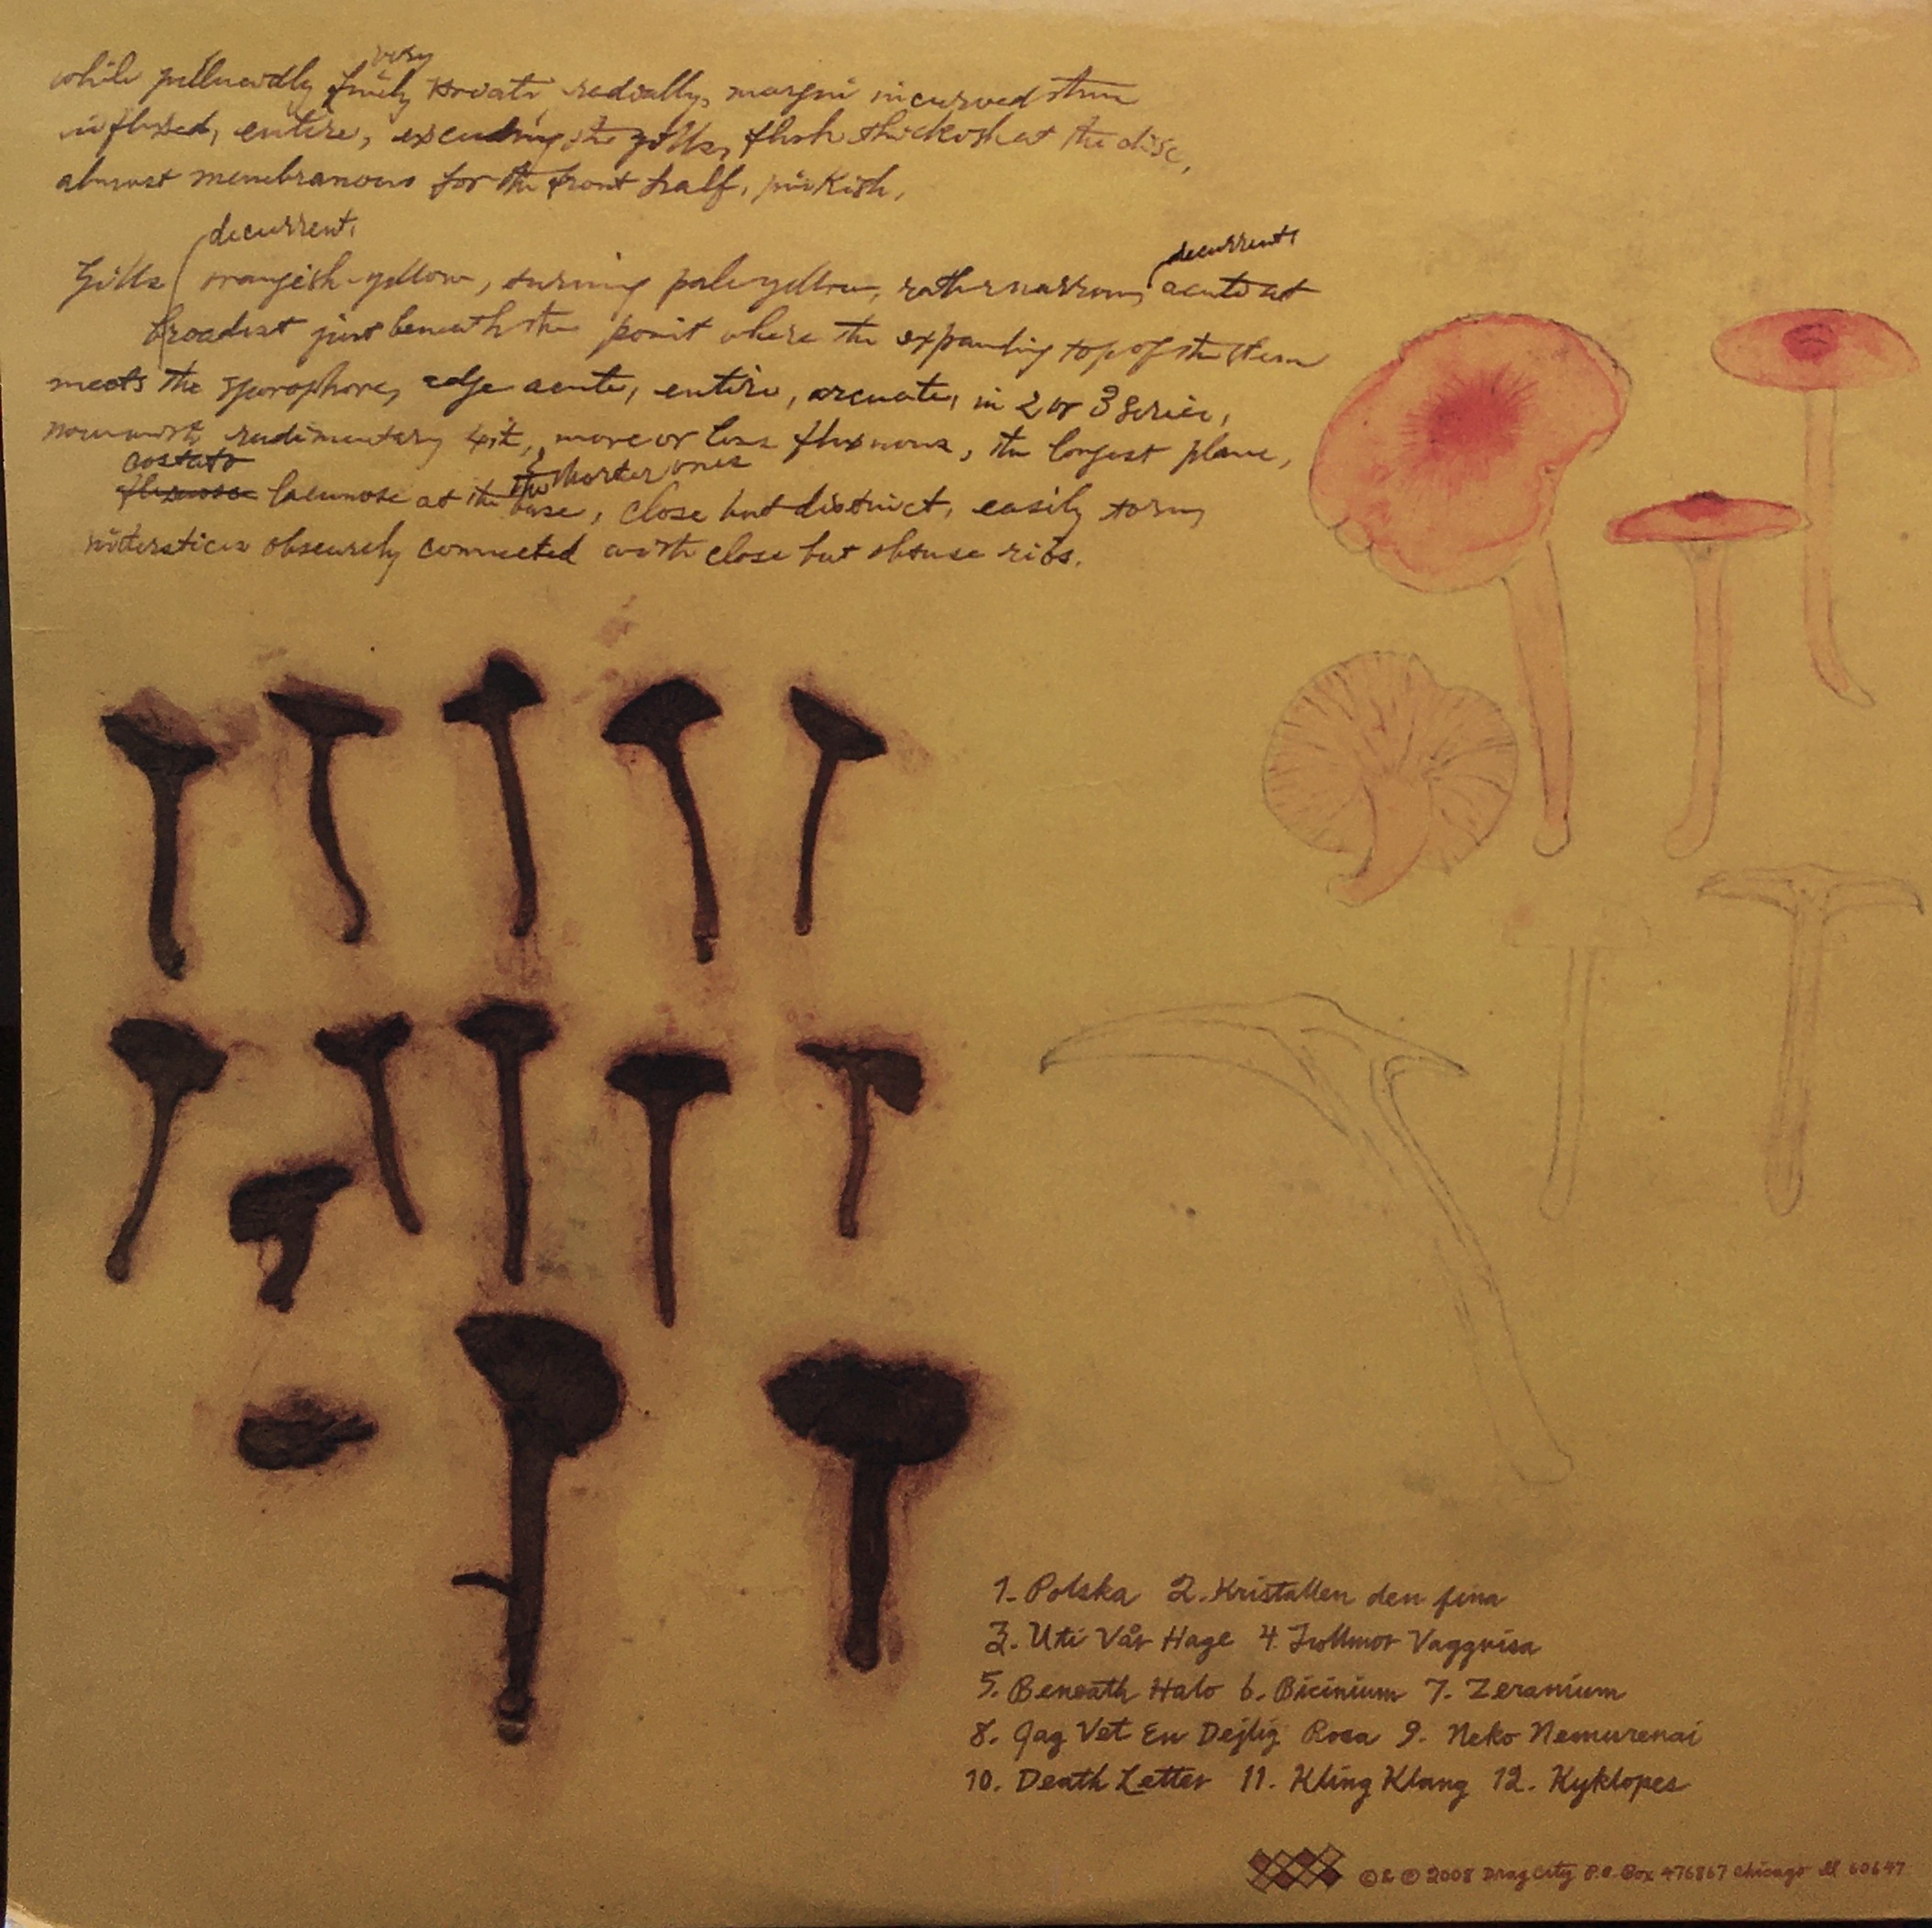 very
while pellucidly finely striate radially, margin incurved then
inflexed, entire, exceeding the gills, flesh thickish at the disc,
almost membranous for the front half, pinkish.
decurrent,
decurrent,
Gills orangish-yellow, turning pale yellow, rather narrow, acute at
broadest just beneath the point where the expanding top of the stem
meets the sporophore, edge acute, entire, arcuate, in 2 or 3 series,
rudimentary more or less flexuous, the longest plane,
costate the shorter ones
flexuose lacunose at the base, close but distinct, easily torn,
interstices obscurely connected with close but obtuse ribs.
1. Polska 2. Kristallen den fina
3. Uti Vår Hage 4. Trollmor Vaggvisa
5. Beneath Halo 6. Bicinium 7. Zeranium
8. Jag Vet En Dejlig Rosa 9. Neko Nemurenai
10. Death Letter 11. Kling Klang 12. Kyklopes
©&℗ 2008 Drag City P.O. Box 476867 Chicago Il 60647